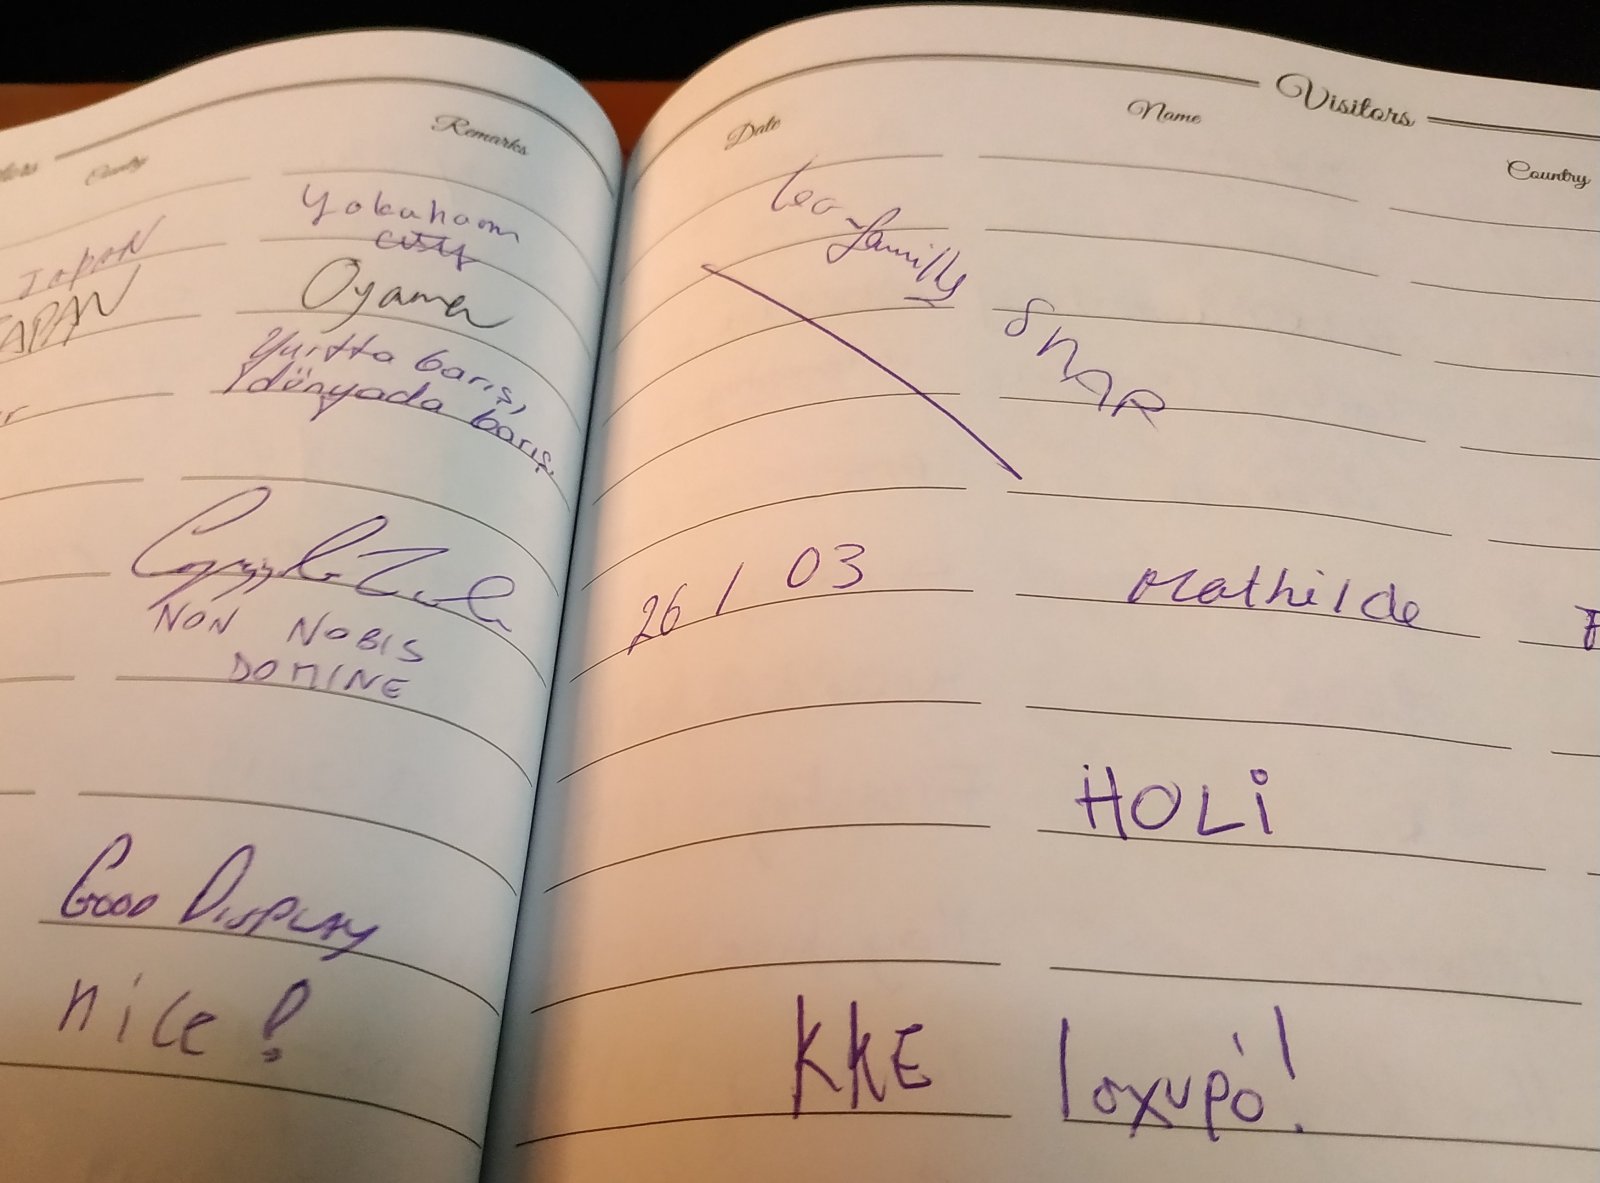 Country Remarks
JAPAN Yokohaom
city
JAPAN Oyama
Yurtta barış,
dünyada barış.
NON NOBIS
DOMINE
GOOD DISPLAY
nice!
Visitors
Date Name Country
family
SNAR
26 / 03 Mathilde
HOLi
KKE Ισχυρό!